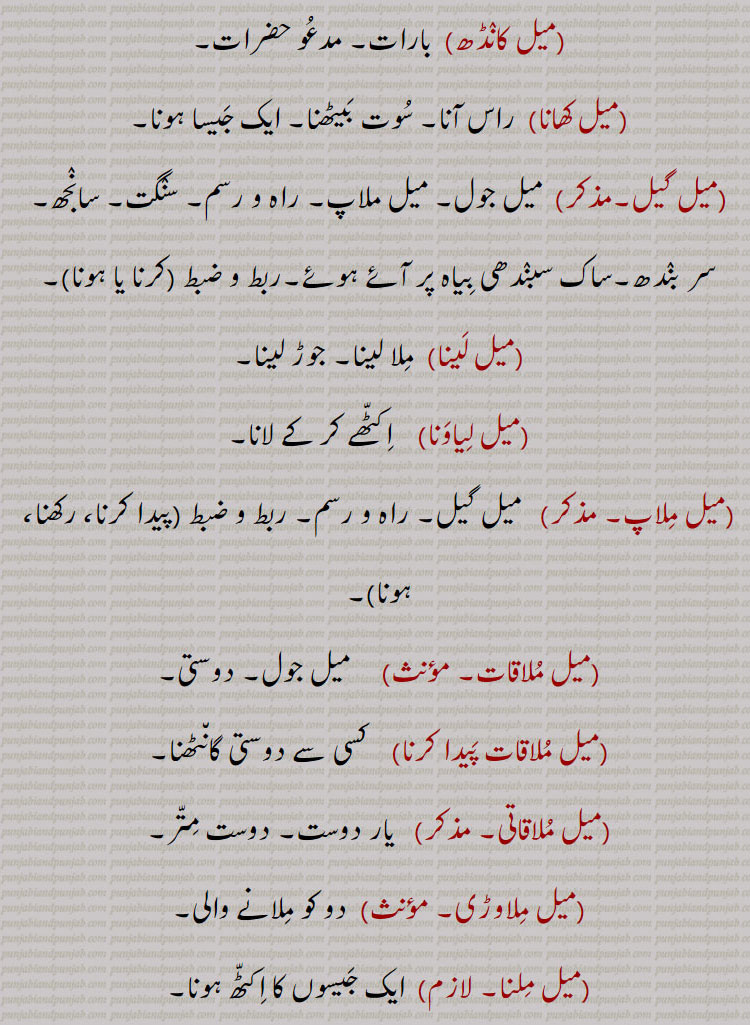 (میل کانْڈھ) بارات۔ مدعُو حضرات۔
(میل کھانا) راس آنا۔ سُوت بَیٹھنا۔ ایک جَیسا ہونا۔
(میل گیل۔مذکر) میل جول۔ میل ملاپ۔ راہ و رسم۔ سنْگت۔ سانْجھ۔
سر بنْدھ۔ساک سبنْدھی بِیاہ پر آئے ہوئے۔ربط و ضبط (کرنا یا ہونا)۔
(میل لَینا) مِلا لینا۔ جوڑ لینا۔
(میل لِیاوَنا) اِکٹّھے کر کے لانا۔
(میل مِلاپ۔ مذکر) میل گیل۔ راہ و رسم۔ ربط و ضبط (پیدا کرنا، رکھنا،
ہونا)۔
(میل مُلاقات۔ مؤنث) میل جول۔ دوستی۔
(میل مُلاقات پَیدا کرنا) کسی سے دوستی گانْٹھنا۔
(میل مُلاقاتی۔ مذکر) یار دوست۔ دوست مِتّر۔
(میل مِلاوڑی۔ مؤنث) دو کو مِلانے والی۔
(میل مِلنا۔ لازم) ایک جَیسوں کا اِکٹّھ ہونا۔